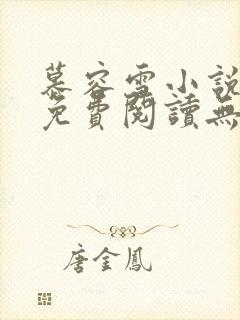 慕容雪小説
免費閱讀無
唐金鳳